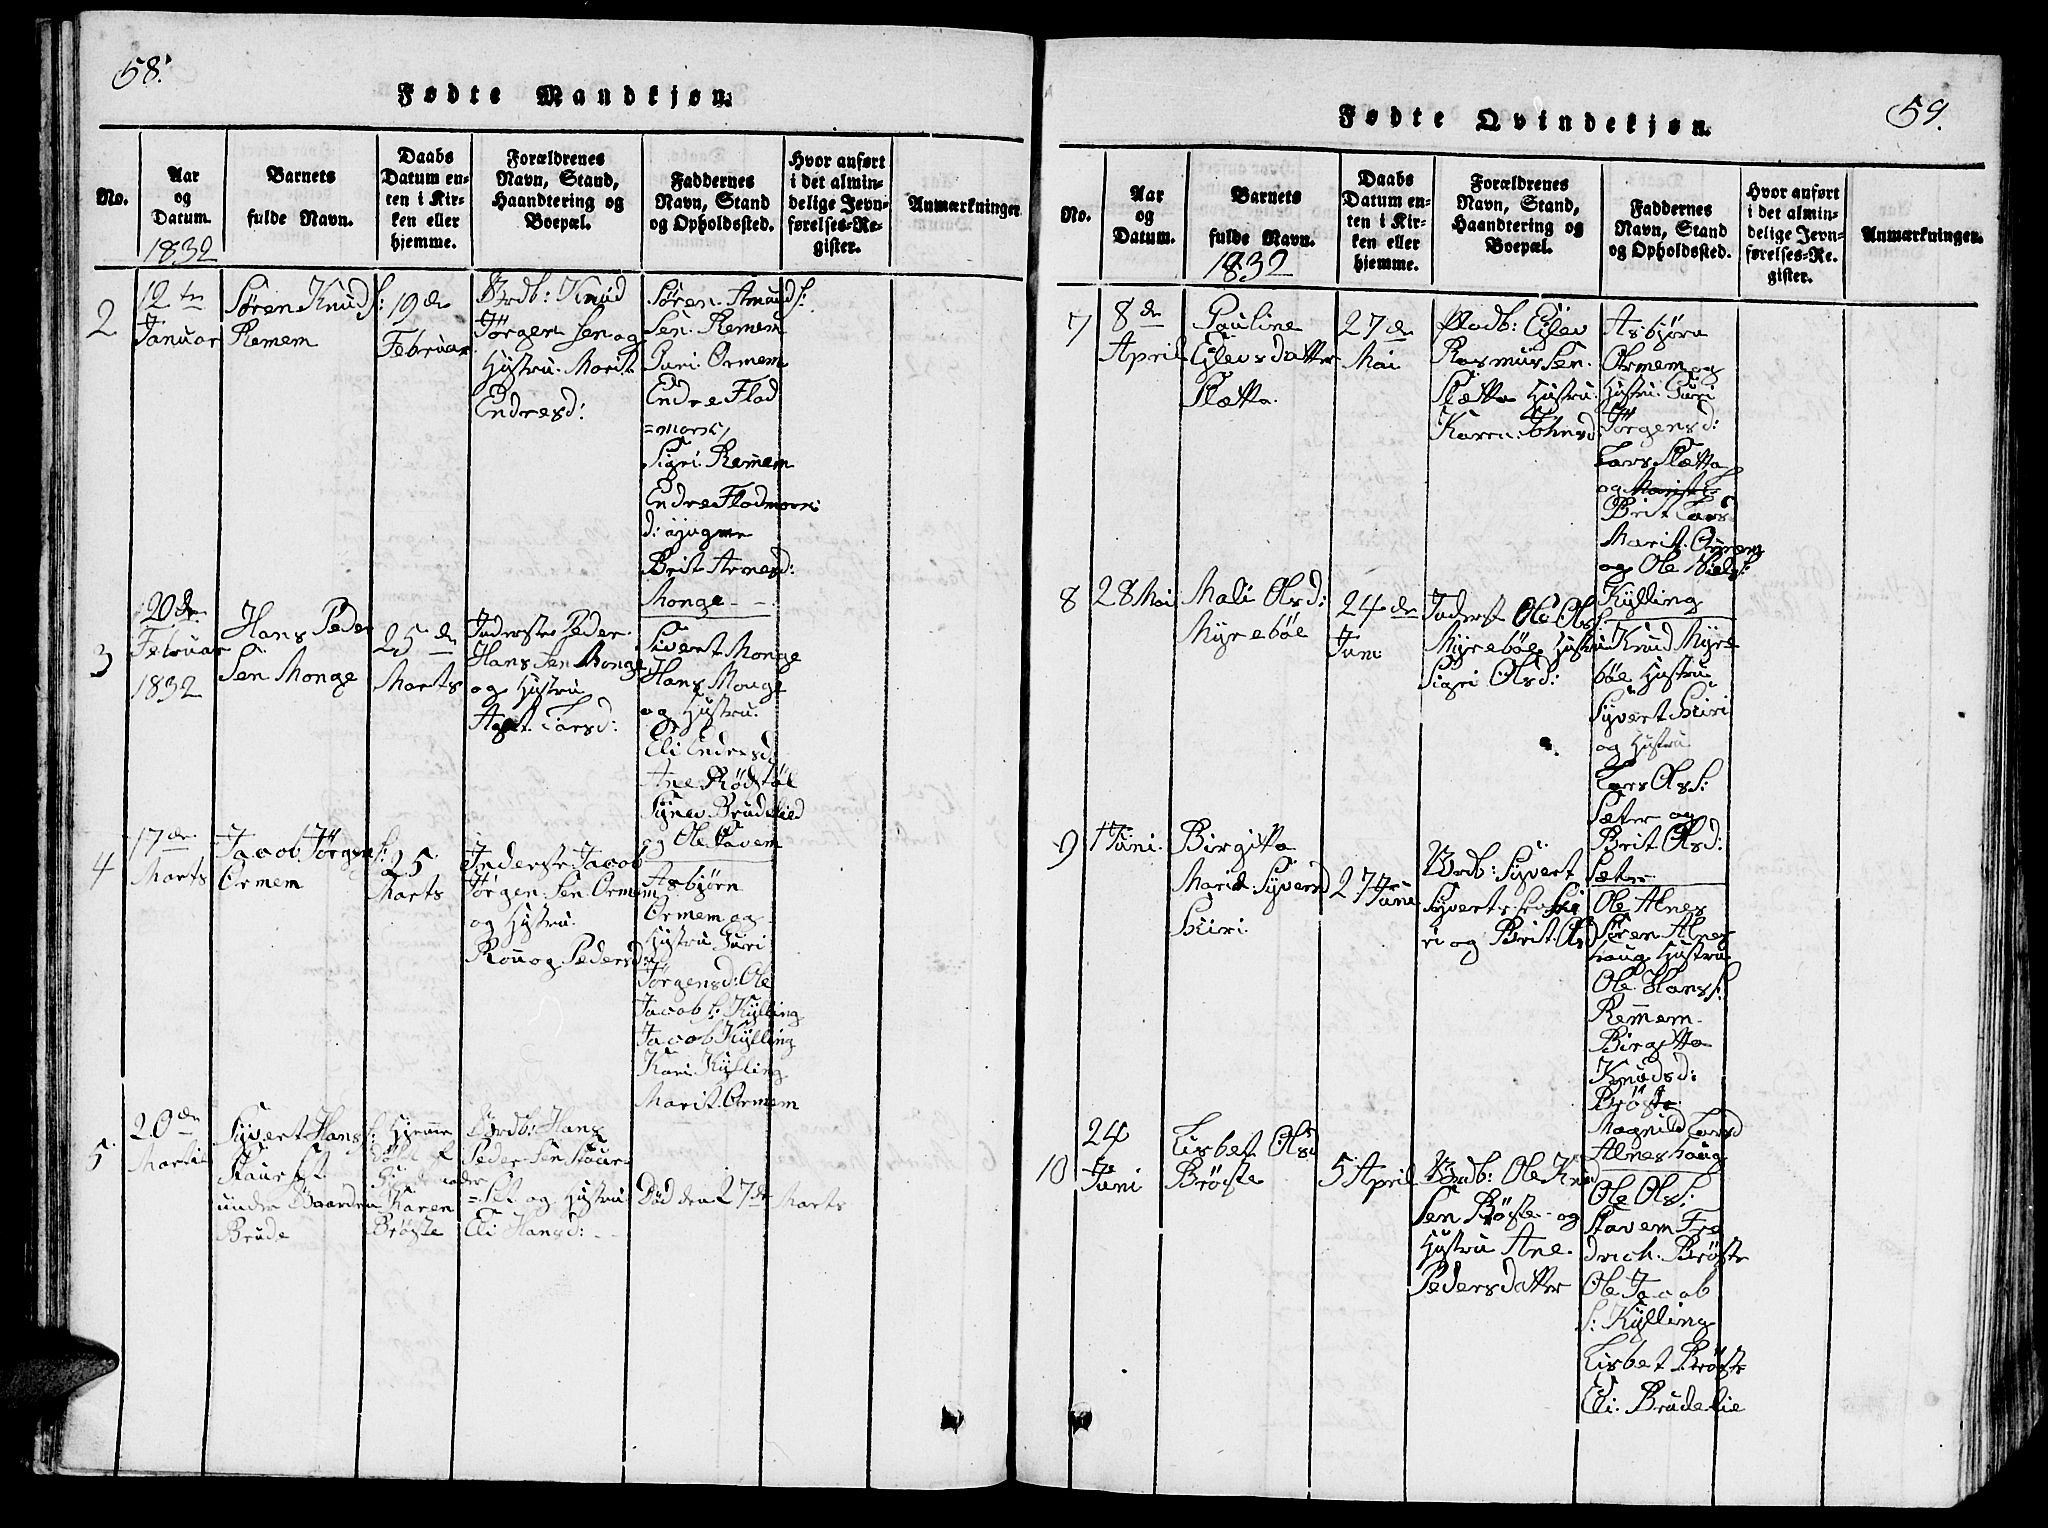 58.
Fødte Mandkjøn.
No.
Aar
og
Datum.
1832
Barnets
fulde Navn.
Daabs
Datum en-
ten i Kir-
ken eller
hjemme.
Forældrenes
Navn, Stand,
Haandtering og
Boepæl.
Faddernes
Navn, Stand
og Opholdssted.
Hvor anført
i det almin-
delige Jevn-
førelses-Re-
gister.
Anmærkninger.
2
12te
Januar
Søren Knuds:
Remem
19de
Februar
Brdb: Knud
Jørgensen og
Hustru Marit
Endresd:
Søren Amunds:
Sen Remem
Guri Ormem
Endre Flad
=mark
Sigri Remem
Endre Fladmark
Brit Arnesd:
Monge
3
20de
Februar
1832
Hans Peder
Sen Monge
25de
Marts
Inderste Peder
Hans Sen Monge
og Hustru
Larsd:
Sivert Monge
Hans Monge
og Hustru
Eli Endresd:
Ane Rødstøl
Synev Brudelied
og Ole Stavem
4
17de
Marts
Jacob Jørgens:
Ormem
25
Marts
Inderste Jacob
Jørgen Sen Ormem
og Hustru
Pedersd:
Asbjørn
Ormem og
Hustru Guri
Jørgensd: Ole
Jacobs: Kylling
Jacob Kylling
Kari Kylling
Marit Ormem
5
20de
Martii
Syvert Hanss:
under
Brude
Hjemme
døbt af
Karen
Brøste
Brdb: Hans
Peder Sen
og Hustru
Eli Hansd:
Død den 27de Marts
59.
Fødte Qvindekjøn.
No.
Aar
og
Datum.
Barnets
fulde Navn.
1832
Daabs
Datum en-
ten i Kir-
ken eller
hjemme.
Forældrenes
Navn, Stand,
Haandtering og
Boepæl.
Faddernes
Navn, Stand
og Opholdssted.
Hvor anført
i det almin-
delige Jevn-
førelses-Re-
gister.
Anmærkninger.
7
8de
April
Pauline
Ejlevsdatter
Slætta
27de
Mai
Pladb: Ejlev
Rasmus Sen
Slætta Hustru
Karen Johnsd:
Asbjørn
Ormem og
Hustru Guri
Jørgensd:
Lars Slætta
og
Brit Larsd
Marit Ormem
og Ole Niels:
Kylling
8
28 Mai
Mali Olsd:
Myrebøe
24de
Juni
Inderst Ole Ols:
Myrebøe Hustru
Sigri Olsd:
Knud Myre
bøe Hustru
Syvert
og Hustru
Lars Ols:
Sæter og
Brit Olsd:
Sæter
9
1 Juni
Birgitta
Marit Syversd
27 Juni
Brdb: Syvert
Syverts
ri og Brit Olsd
Ole Alnes
Søren Alnes
haug Hustru
Ole Hanss:
Remem
Birgitta
Knudsd:
Brøste
Magnild Larsd
Alneshaug
10
24
Juni
Lisbet Olsd
Brøste
5 April
Brdb: Ole Knud
Sen Brøste og
Hustru Ane
Pedersdatter
Ole Ols:
Stavem Fre
drich Brøste
Ole Jacob
s: Kylling
Lisbet Brøste
Eli Brudelie